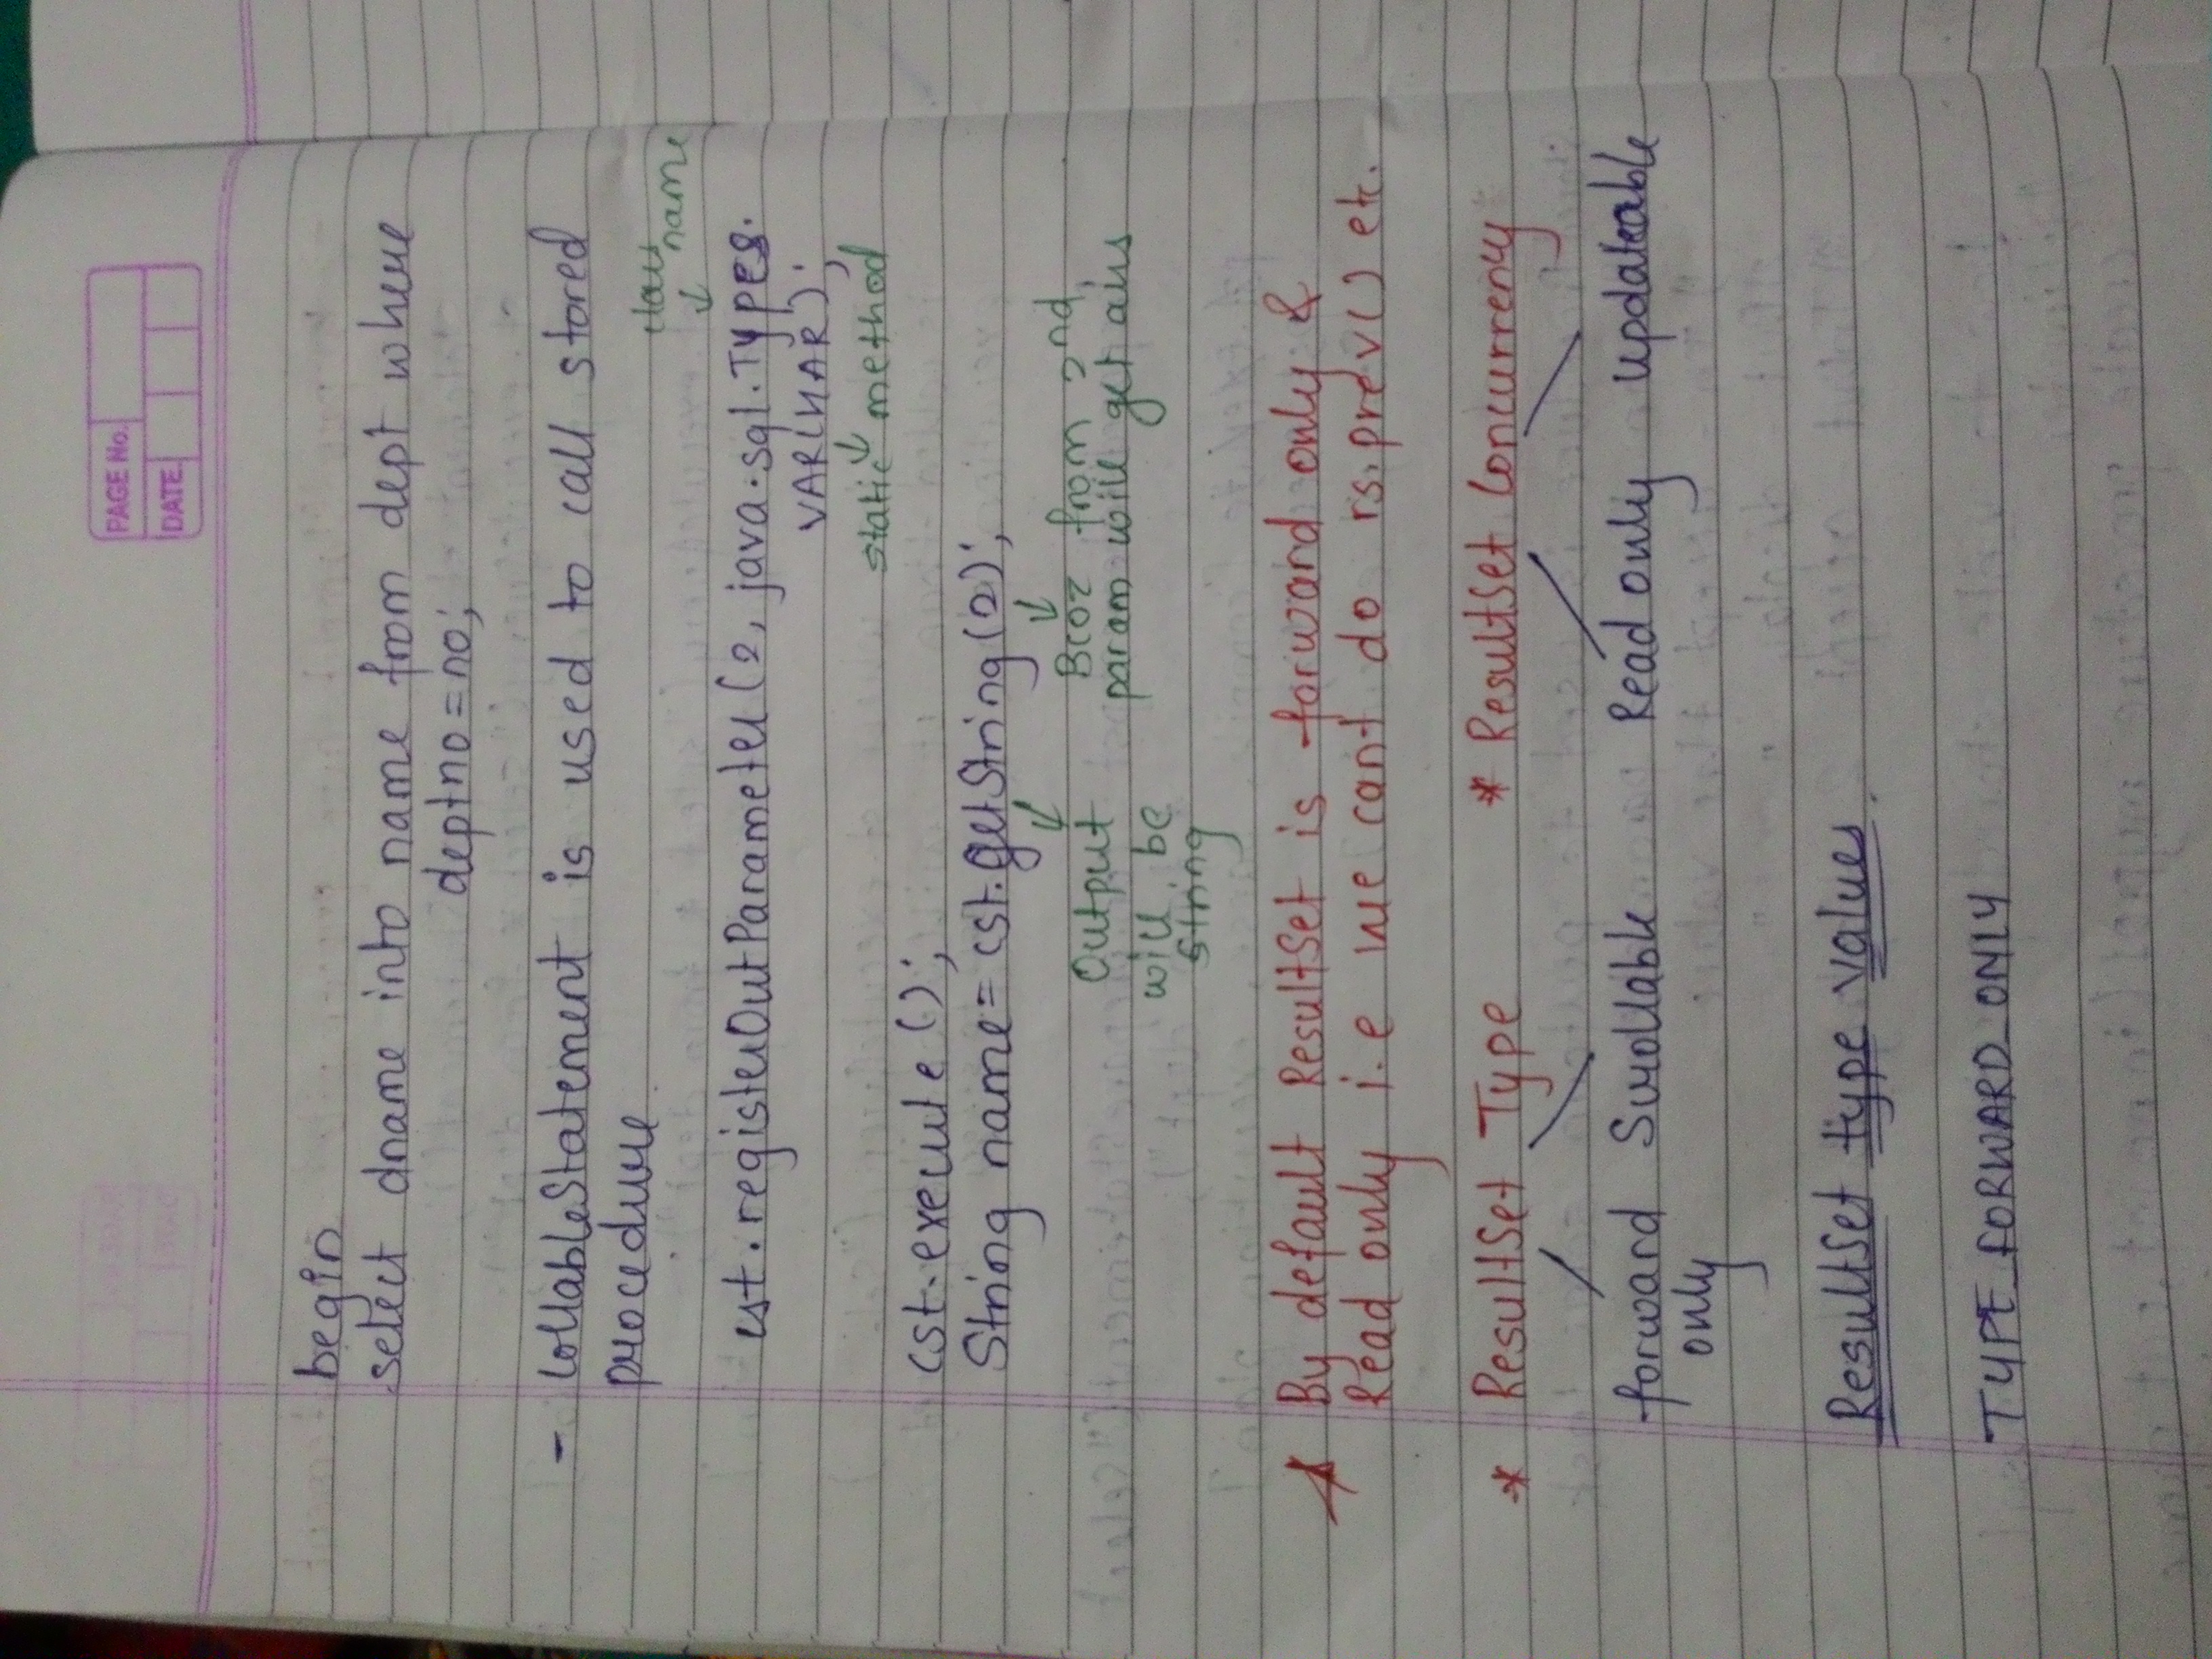 PAGE No.
DATE
begin
select dname into name from dept where
deptno = no;
- CallableStatement is used to call stored
procedure.
class name
↓
cst.registerOutParameter(2, java.sql.Types.
VARCHAR);
↓
static method
cst.execute();
String name = cst.getString(2);
↓ ↓
Output Bcoz from 2nd
will be param will get ans
string
* By default ResultSet is forward only &
Read only i.e we cant do rs.prev() etc.
* ResultSet Type * ResultSet Concurrency
forward Scrollable Read only Updateable
only
ResultSet type values
TYPE_FORWARD_ONLY